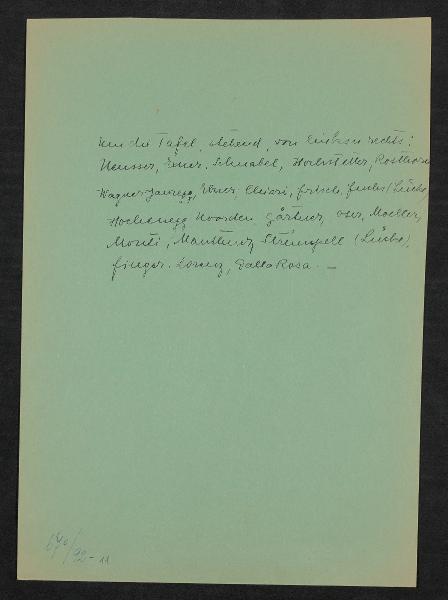 Um die Tafel, stehend, von links n. rechts:
Neusser, Exner, Schnabel, Hochstetter, Rosthorn
Wagner Jauregg, Ebner, Chiari, Frisch, Fuchs (Lücke),
Hochenegg Noorden, Gärtner, Oser, Moeller,
Monti, Mauthner, Strümpell (Lücke),
Finger. Lorenz, Dalla Rosa. —
640/92-11